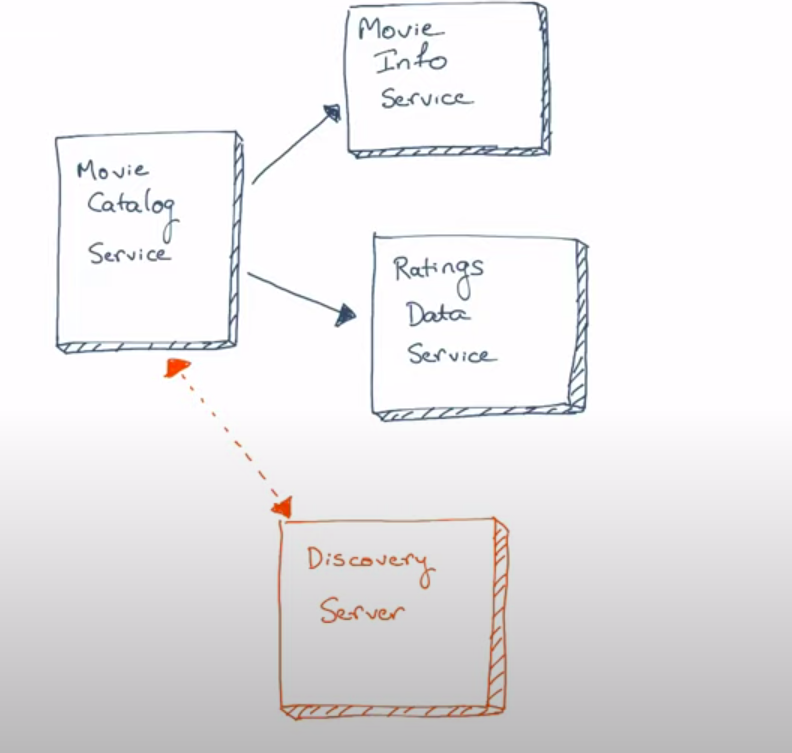 Movie
Info
Service
Movie
Catalog
Service
Ratings
Data
Service
Discovery
Server